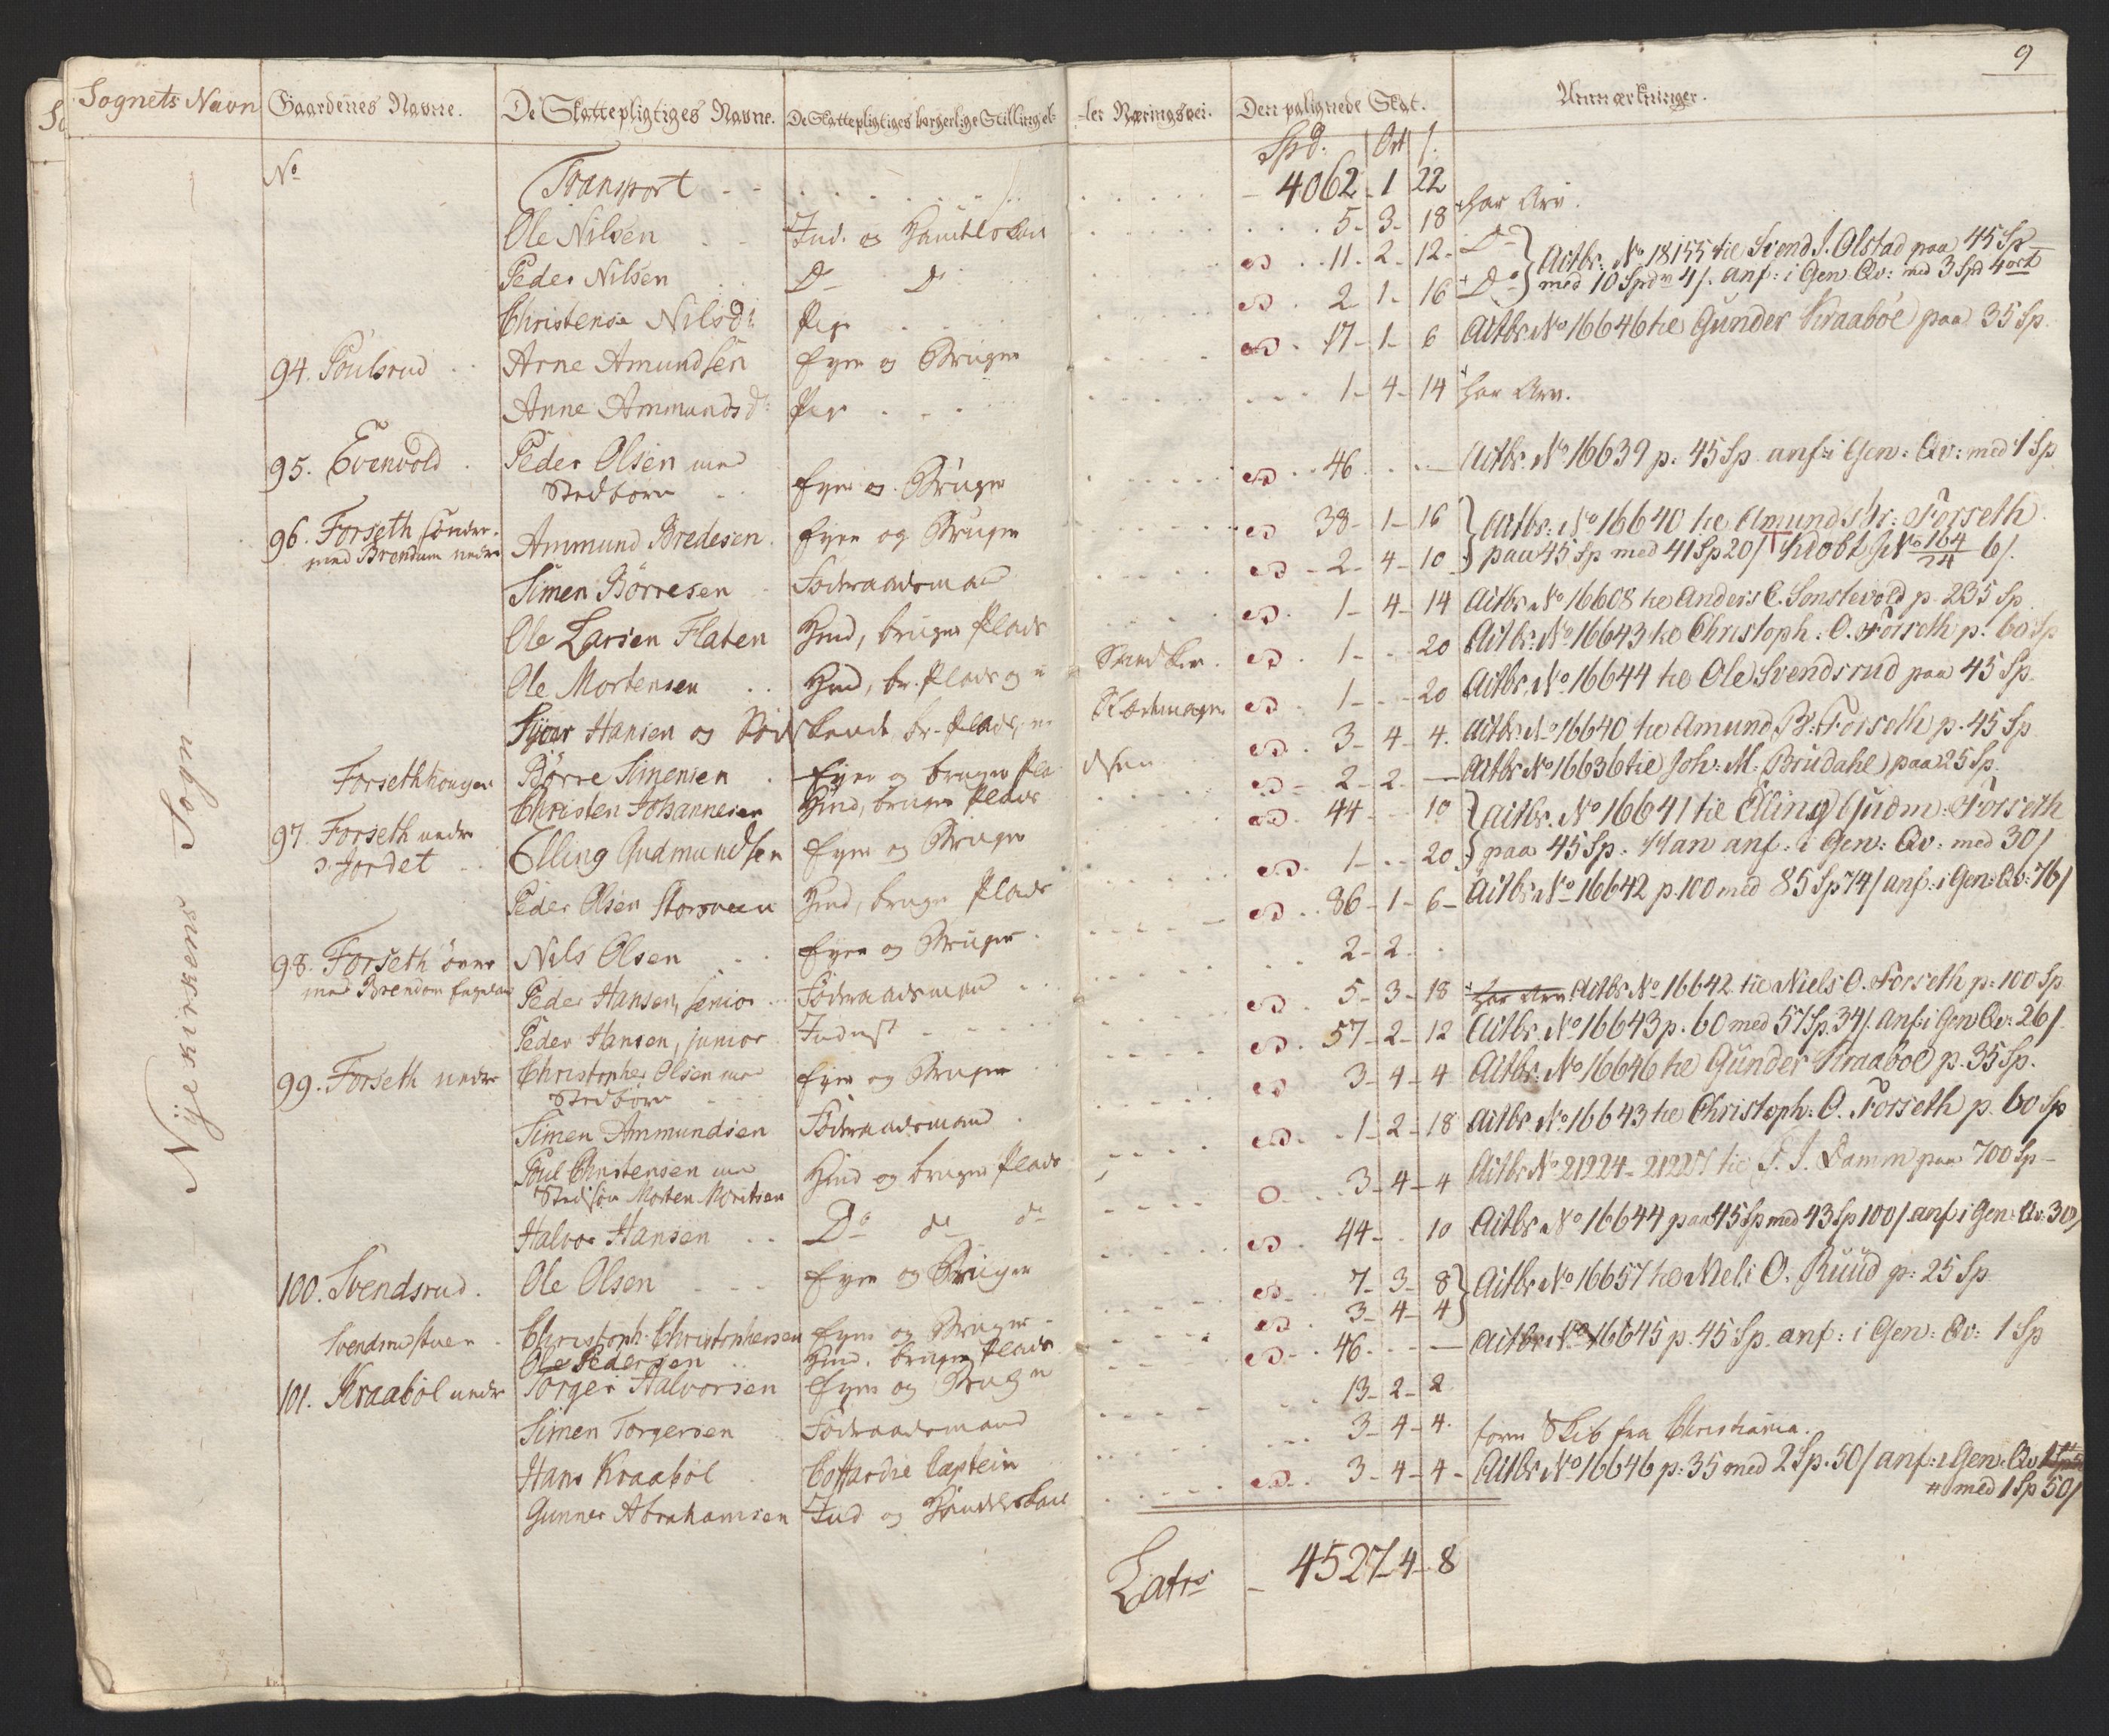 9
Sognets Navn Gaardenes Navne. De Skattepligtiges Navne. De Skattepligtiges borgerlige Stilling el- -ler Næringsvei. Den palignede Skat. Anmærkninger.
Spd. Ort s.
Nye kirkens Sogn
No Transport - - 4062 - 1 22
Ole Nilsen Ind. og 5 - 3 - 18 har Arv.
Peder Nilsen Do Do 11 - 2 - 12 - Do } Actbr: No 18155 til Svend J. Olstad paa 45 Sp
Christense Nilsd: Pige 2 1 - 16 Do } med 10 Spd 4 s. anf: i Gen Qv: med 3 Spd 4 ort
94. Poulsrud Arne Amundsen Eyer og Bruger 17 - 1 - 6 Actbr No 16646 til Gunder Kraabøe paa 35 Sp.
Anne Ammundsd: Pige 1 - 4 - 14 har Arv.
95. Evenvold Peder Olsen med
Stedbørn Eyer og Bruger 46 - Actbr. No 16639 p. 45 Sp. anf: i Gen: Qv: med 1 Sp
96. Forseth søndre Ammund Bredesen Eyer og Bruger 38 - 1 - 16 } Actbr. No 16640 til Amund Br: Forseth
med Brendum nedre Simen Børresen Foderaadsmand - 2 - 4 - 10 } paa 45 Sp med 41 Sp 20 s No 164/24 6 s.
Ole Larsen Flaten Hmd, bruger Plads 1 - 4 - 14 Actbr No 16608 til Anders C. Sonstevold p. 235 Sp
Ole Mortensen Hmd, br. Plads og Snedker 1 - 20 Actbr: No 16643 til Christoph: O. Forseth p. 60 Sp
Syver Hansen og Sødskende br. Plads, Skomager 1 - 20 Actbr. No 16644 til Ole Svendsrud paa 45 Sp.
Forsethhougen Børre Simensen Eyer og bruger Pladsen 3 - 4 - 4. Actbr No 16640 til Amund Br: Forseth p. 45 Sp
Christen Johannesen Hmd, bruger Plads 2 - 2 - Actbr No 16636 til Joh: M: Brudahl paa 25 Sp.
97. Forseth nedre Elling Gudmundsen Eyer og Bruger 44 - 10 } Actbr. No 16641 til Elling Gudm: Forseth
Jordet Peder Olsen Storsveen Hmd, bruger Plads 1 - 20 } paa 45 Sp. Han anf: i Gen: Qv: med 30 s
98. Forseth øvre Nils Olsen Eyer og Bruger 86 - 1 - 6 - Actbr. No 16642 p. 100 med 85 Sp 74 s anf: i Gen: Qv: 76 s
med Brendom Peder Hansen, senior Foderaadsmand 2 - 2
Peder Hansen, junior Inderst 5 - 3 - 18 har Arv Actbr No 16642 til Niels O. Forseth p. 100 Sp
99. Forseth nedre Christopher Olsen med
Stedbørn Eyer og Bruger 57 - 2 - 12 Actbr. No 16643 p. 60 med 57 Sp. 34 s. anf: i Gen Qv: 26 s
Simen Ammundsen Foderaadsmand 3 - 4 - 4 Actbr: No 16646 til Gunder Kraaboe p. 35 Sp.
Poul Christensen med
Stedsøn Morten Moritsen Hmd og bruger Plads 1 - 2 - 18 Actbr. No 16643 til Christoph: O. Forseth p. 60 Sp
Halvor Hansen Do do do 3 - 4 - 4 Actbr No 21224 - 21227 til J. J. Damm paa 700 Sp -
100. Svendsrud. Ole Olsen Eyer og Bruger 44 - 10 Actbr No 16644 paa 45 Sp med 43 Sp 100 s. anf i Gen: Qv: 30 s
Svendsrudstuen Christoph. Christophersen Eyer og Bruger 7 - 3 - 8 } Actbr No 16657 til Niels O. Ruud p: 25 Sp
Ole Pedersen Hmd. bruger Plads 3 - 4 - 4 }
101. Kraabøl nedre Torger Halvorsen Eyer og Bruger 46 - Actbr No 16645 p. 45 Sp. anf: i Gen: Qv: 1 Sp
Simen Torgersen Foderaadsmand 13 - 2 - 2
Hans Kraabøl Coffardie Captein 3 - 4 - 4. fører Skib fra Christiania.
Gunner Abrahamsen Ind og 3 - 4 - 4 - Actbr. No 16646 p: 35 med 2 Sp. 50 s anf: i Gen: Qv
med 1 Sp 50 s
Latrs - 4527 - 4 - 8